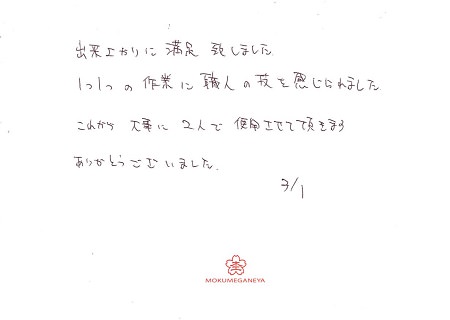 出来上がりに 満足 致しました。
1つ1つの 作業に 職人の技を感じられました
これから 大事に 2人で 使用させて頂きます
ありがとうございました。
3/1
杢
MOKUMEGANEYA